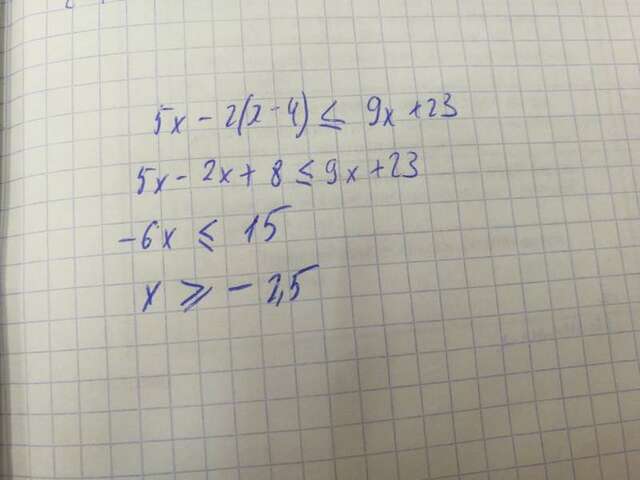 5x - 2(x - 4) ≤ 9x + 23
5x - 2x + 8 ≤ 9x + 23
-6x ≤ 15
x ⩾ - 2,5